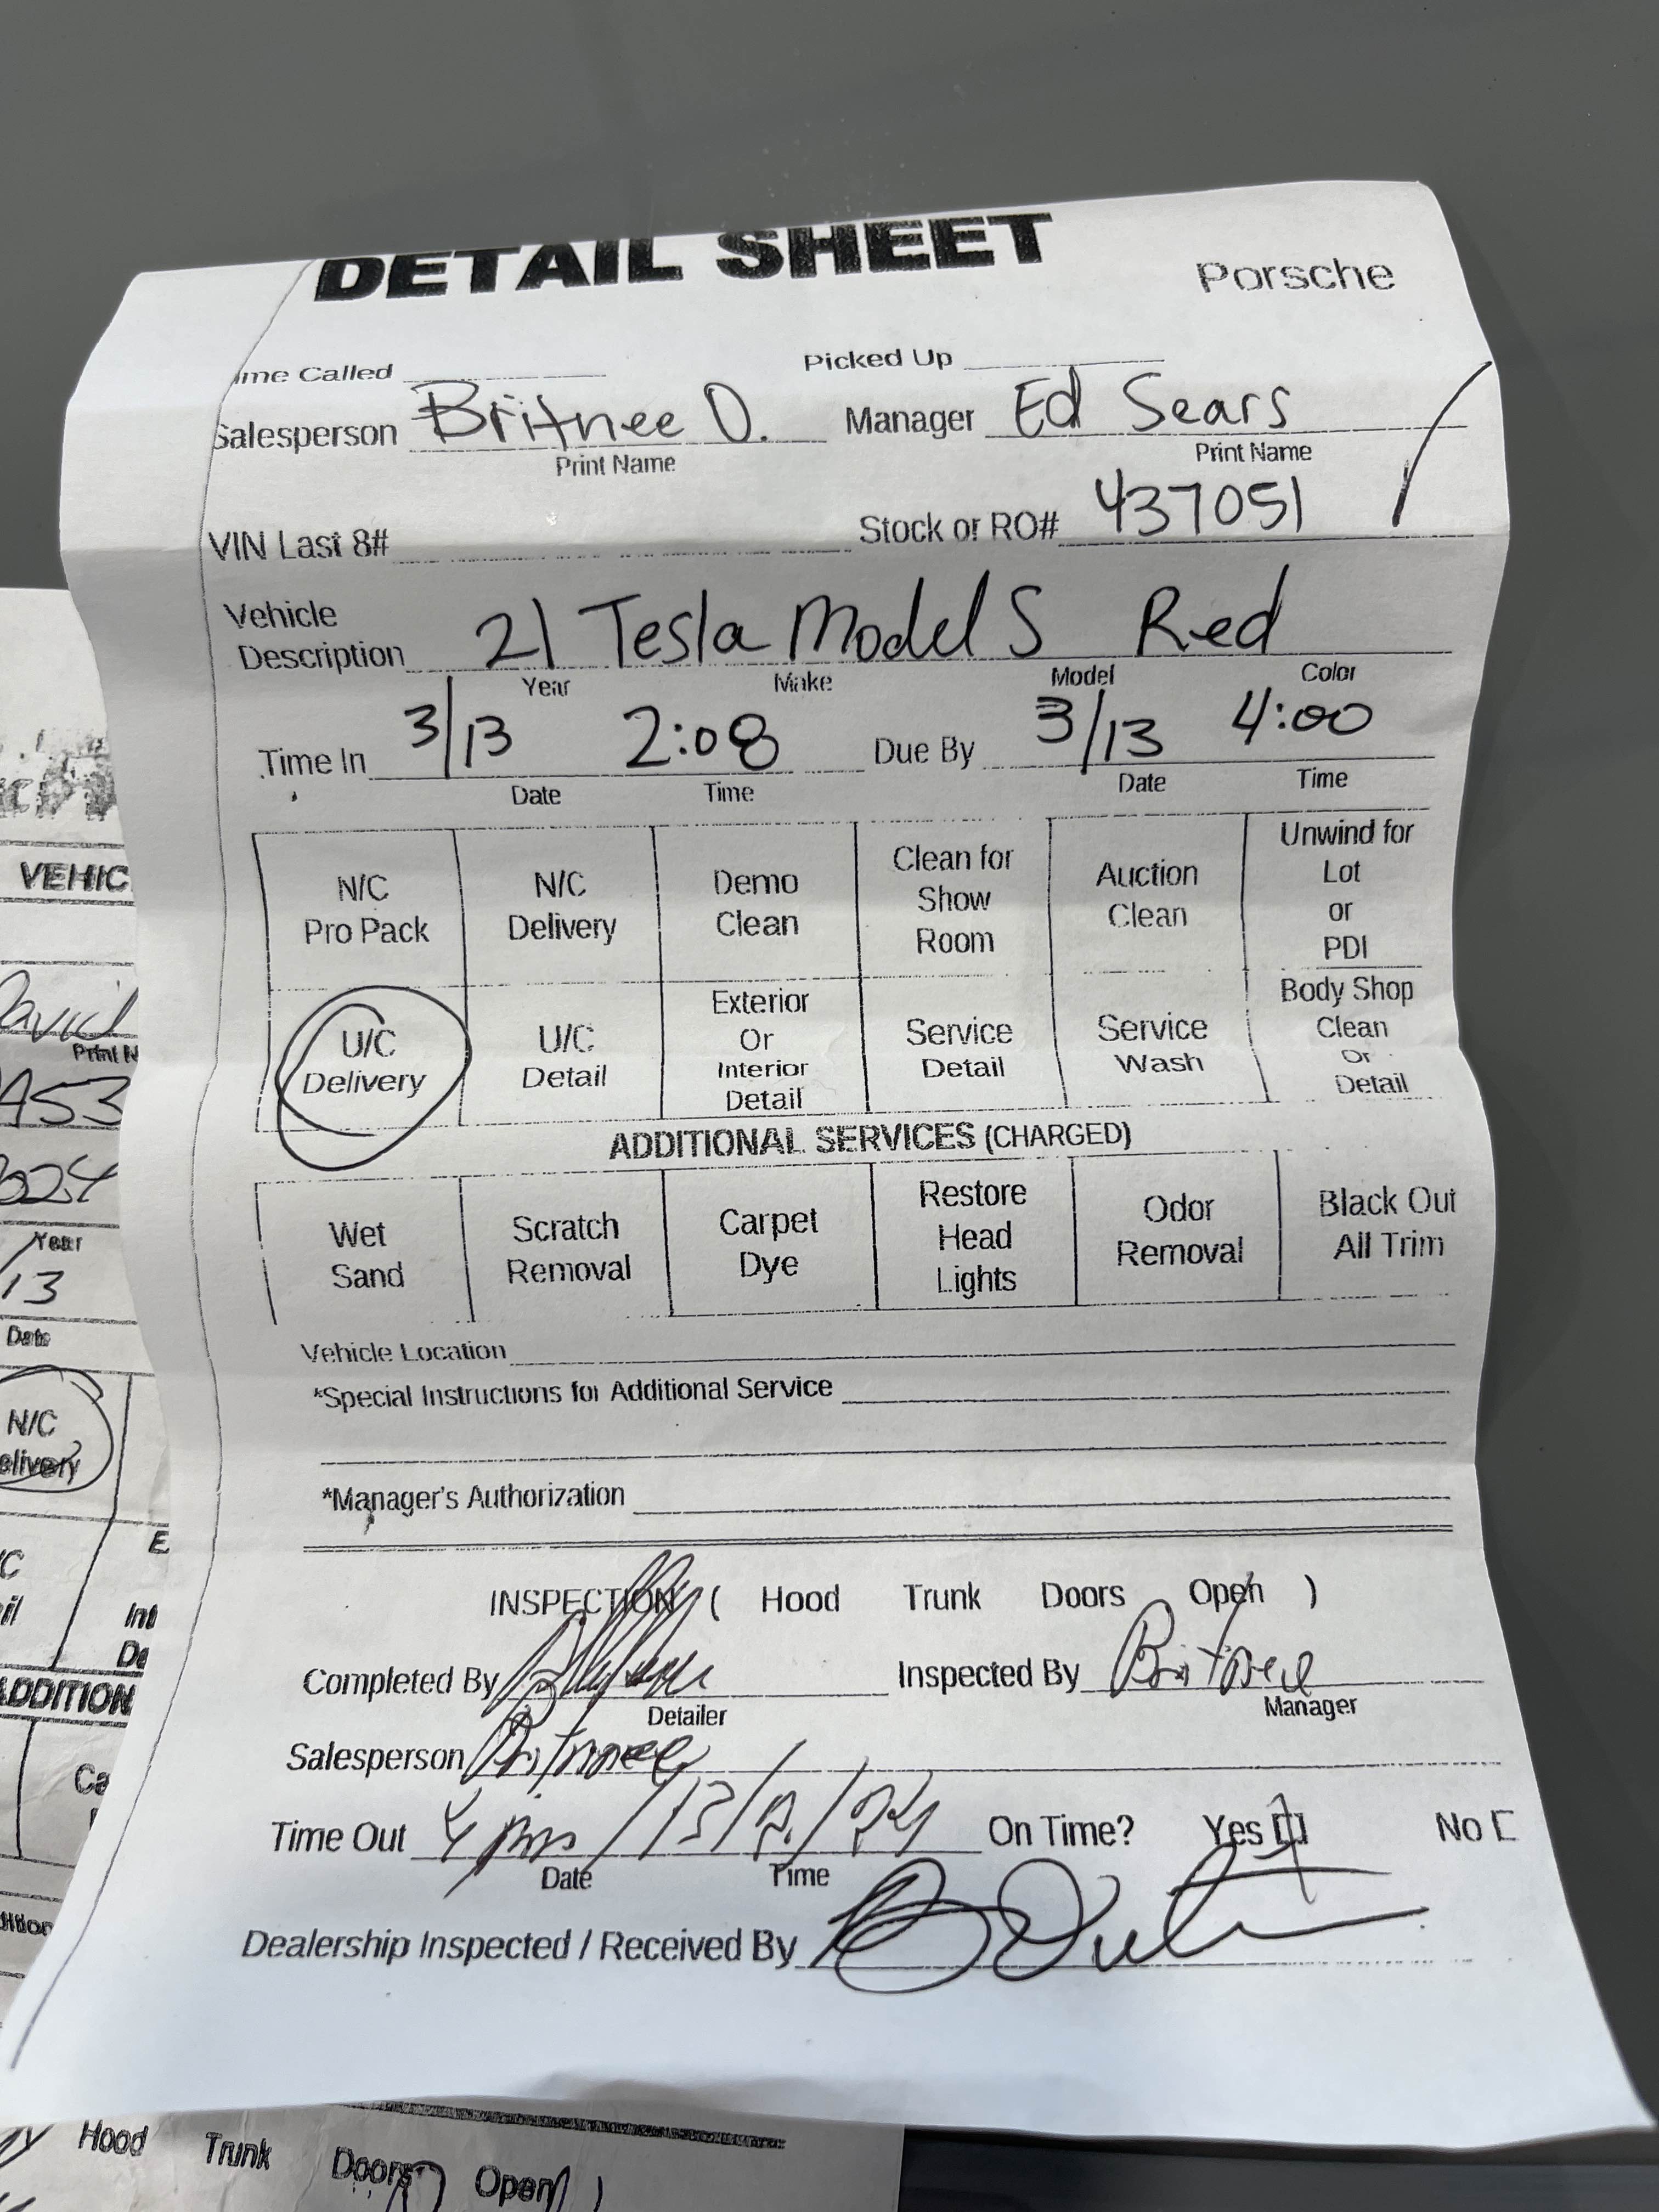 DETAIL SHEET
Porsche
ime Called Picked Up
Salesperson Britnee D. Manager Ed Sears
Print Name Print Name
VIN Last 8# Stock or RO# 437051
Vehicle
Description 21 Tesla Model S Red
Year Make Model Color
Time In 3/13 2:08 Due By 3/13 4:00
Date Time Date Time
N/C Pro Pack
N/C Delivery
Demo Clean
Clean for Show Room
Auction Clean
Unwind for Lot or PDI
U/C Delivery
U/C Detail
Exterior Or Interior Detail
Service Detail
Service Wash
Body Shop Clean Or Detail
ADDITIONAL SERVICES (CHARGED)
Wet Sand
Scratch Removal
Carpet Dye
Restore Head Lights
Odor Removal
Black Out All Trim
Vehicle Location
*Special Instructions for Additional Service
*Manager's Authorization
INSPECTION ( Hood Trunk Doors Open )
Completed By Inspected By Britnee
Detailer Manager
Salesperson Britnee
Time Out 4 pm On Time? Yes No
Date Time
Dealership Inspected / Received By
VEHIC
David
Print N
A53
Year
13
Date
N/C
elivery
E
Int
De
ADDITION
Ca
Hood Trunk Doors Open )